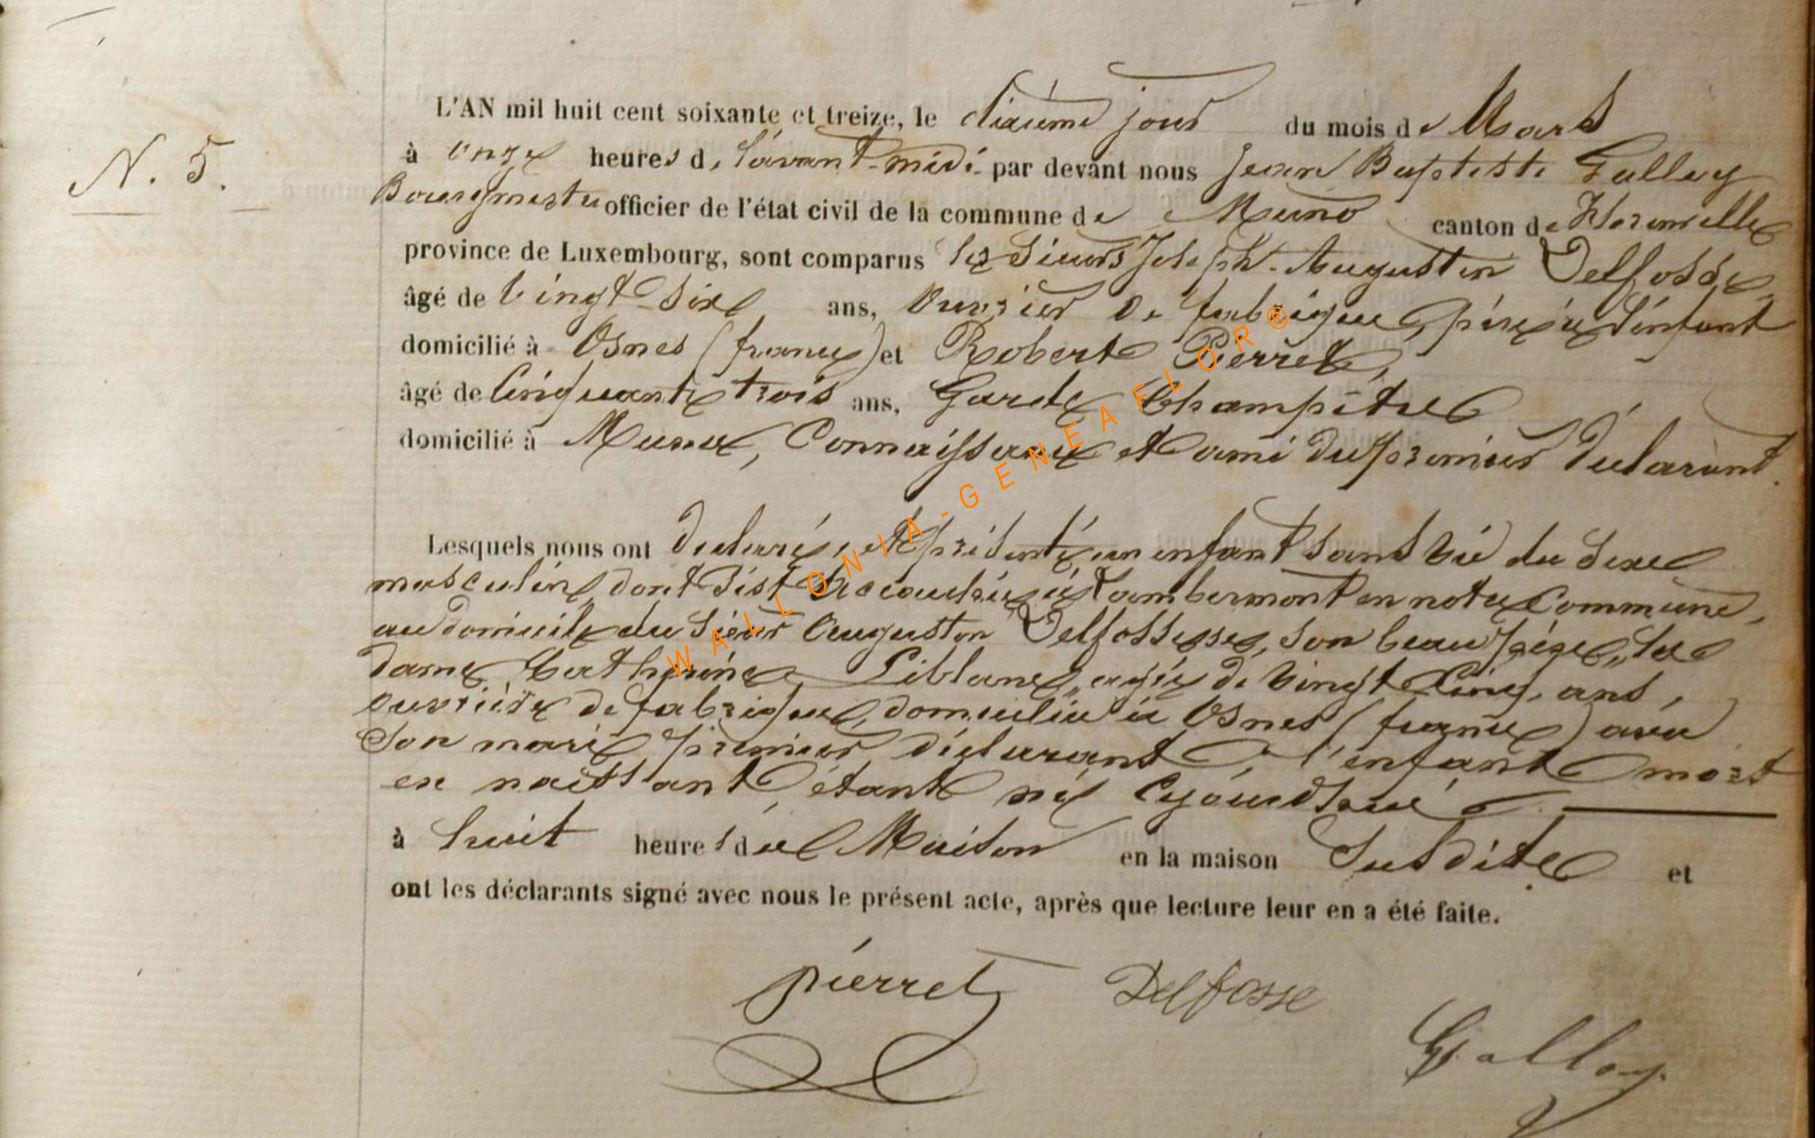 N. 5.
L'AN mil huit cent soixante et treize, le dixième jour du mois de Mars
à onze heures de l'avant-midi par devant nous Jean Baptiste Galloy
Bourgmestre officier de l'état civil de la commune de Muno canton de Florenville
province de Luxembourg, sont comparus les Sieurs Joseph-Augustin Delfosse,
âgé de vingt-six ans, ouvrier de fabrique, père à l'enfant
domicilié à Osnes (france) et Robert Pierret,
âgé de Cinquante trois ans, Garde Champêtre
domicilié à Muno, Connaissance et ami du premier déclarant.
Lesquels nous ont déclaré, et présenté un enfant sans vie du Sexe
masculin, dont s'est accouchée à Lambermont en notre Commune,
au domicile du Sieur Auguston Delfosse, son beau père, la
dame Catherine Leblanc, agée de vingt Cinq ans,
ouvrière de fabrique, domiciliée à Osnes (france) avec
son mari premier déclarant, l'enfant mort
en naissant étant né Cejourd'hui
à huit heures du en la maison Susdite et
ont les déclarants signé avec nous le présent acte, après que lecture leur en a été faite.
pierret Delfosse
Galloy
WALLONIA-GENEAFLOR®